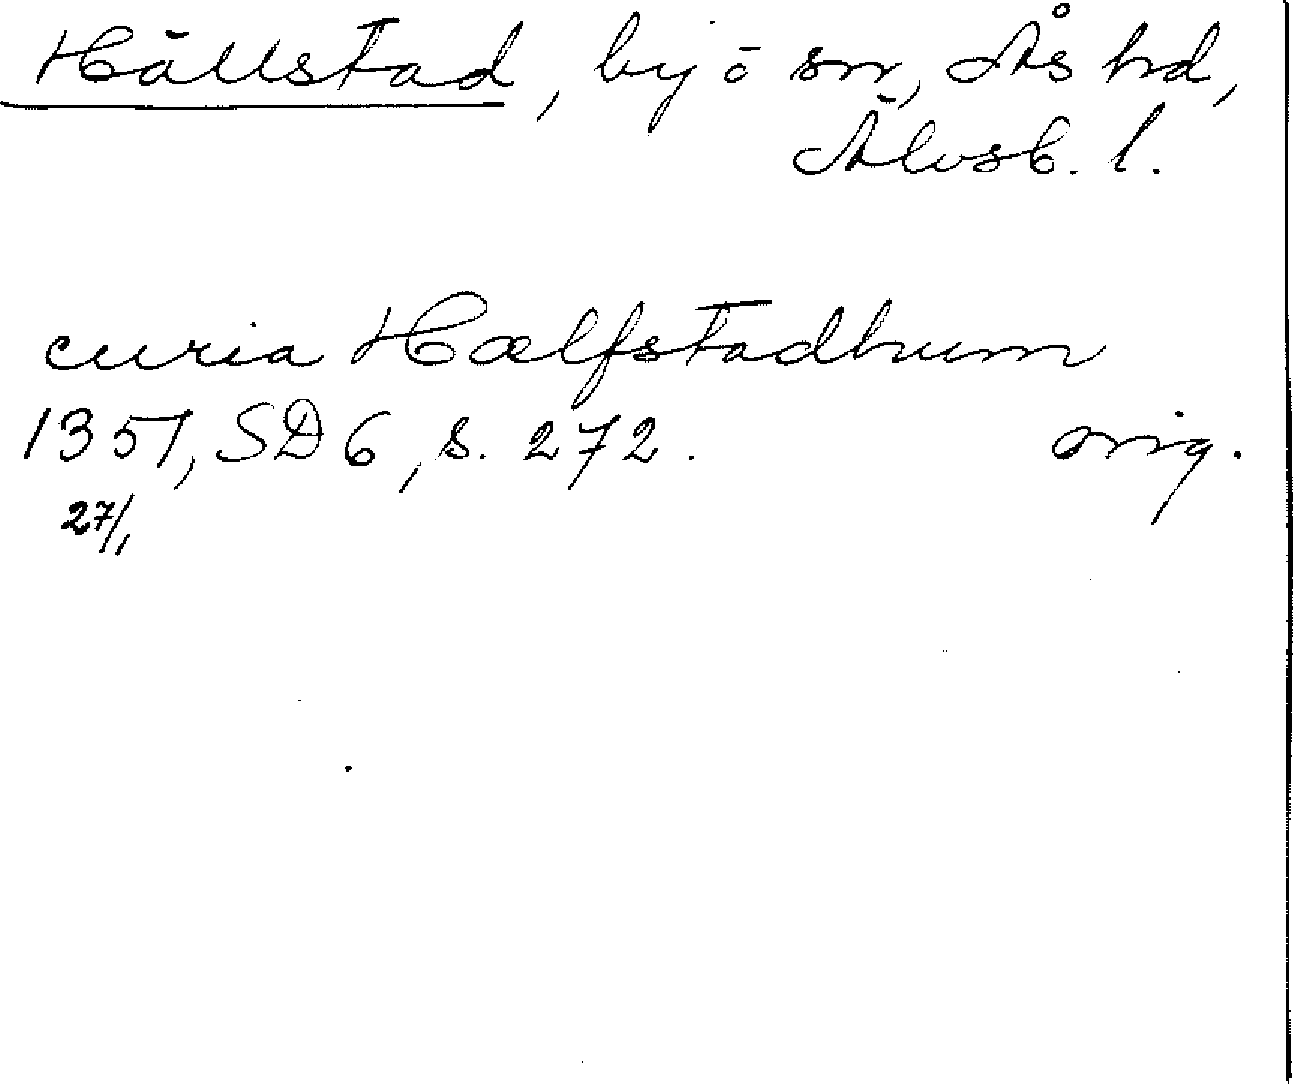 Hällstad, by o sn, Ås hd,
Älvsb. l.
curia Hælfstadhum
1351, SD 6, s. 272. orig.
27/1